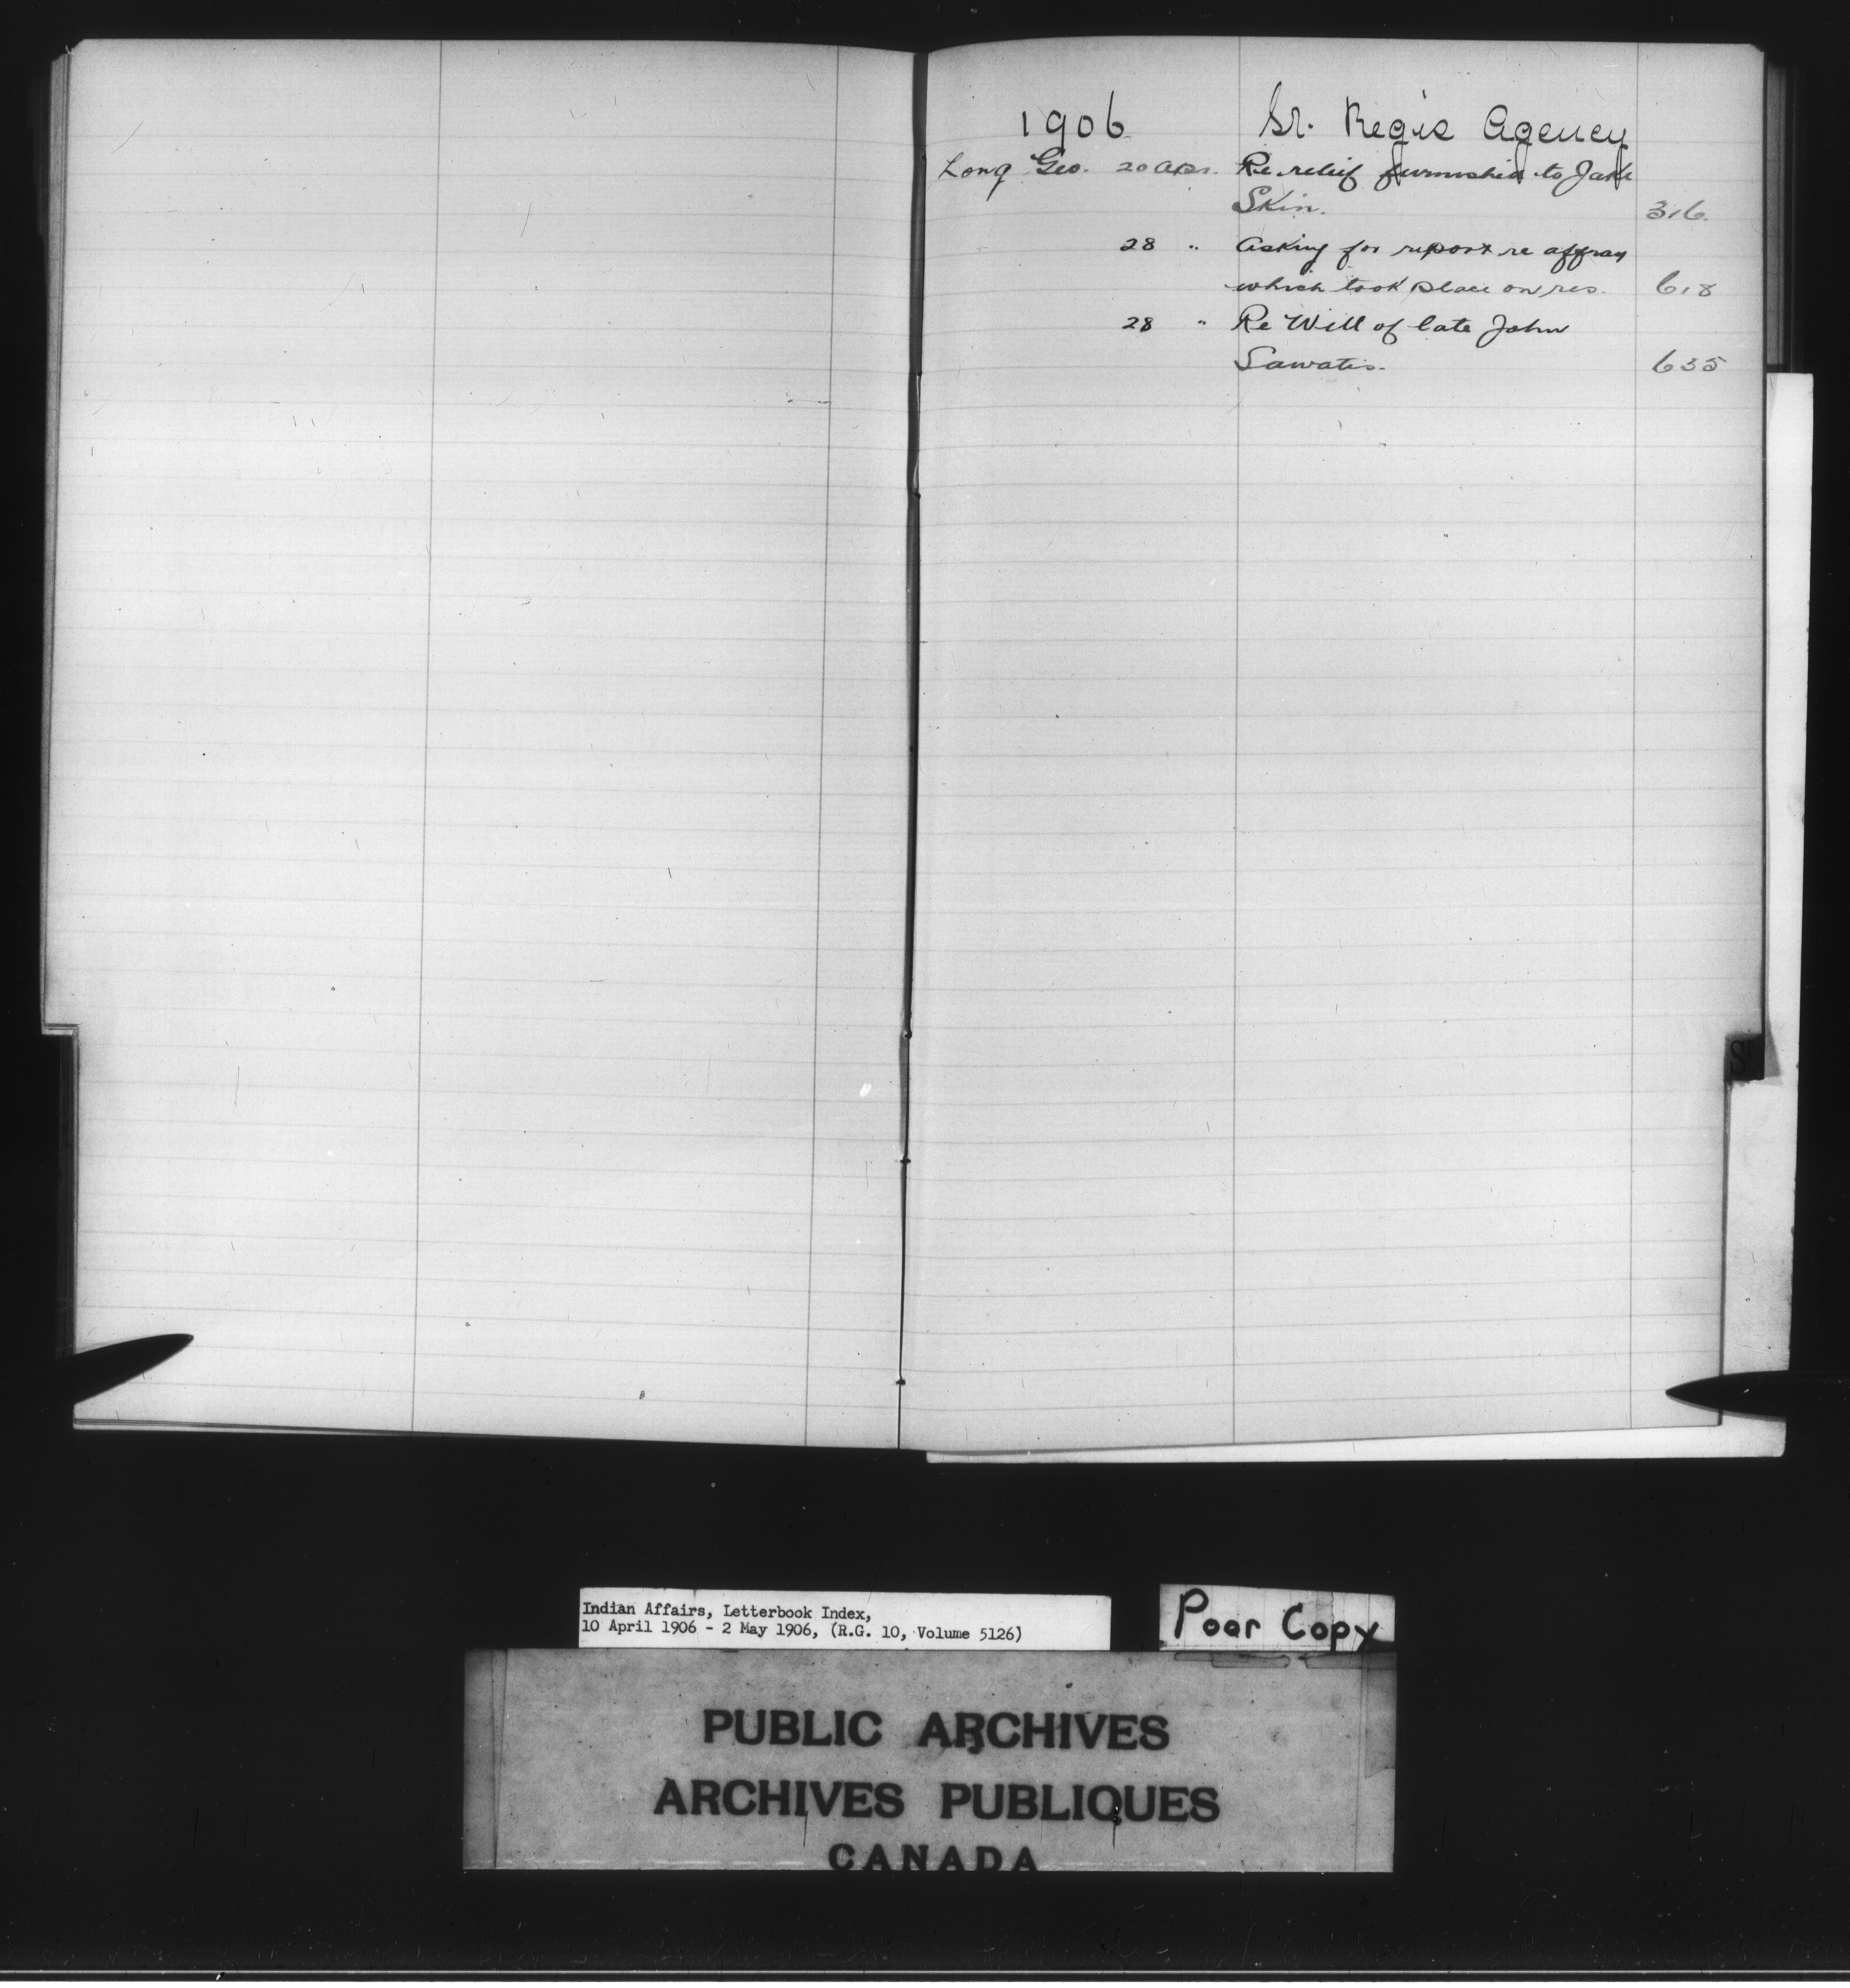 1906 St. Regis Agency
Long Geo. 20 Apr. Re relief furnished to Jake
Skin. 316.
28 " Asking for report re affray
which took place on res. 618
28 " Re Will of late John
Sawatis. 635
St
Indian Affairs, Letterbook Index,
10 April 1906 - 2 May 1906, (R.G. 10, Volume 5126)
Poor Copy
PUBLIC ARCHIVES
ARCHIVES PUBLIQUES
CANADA